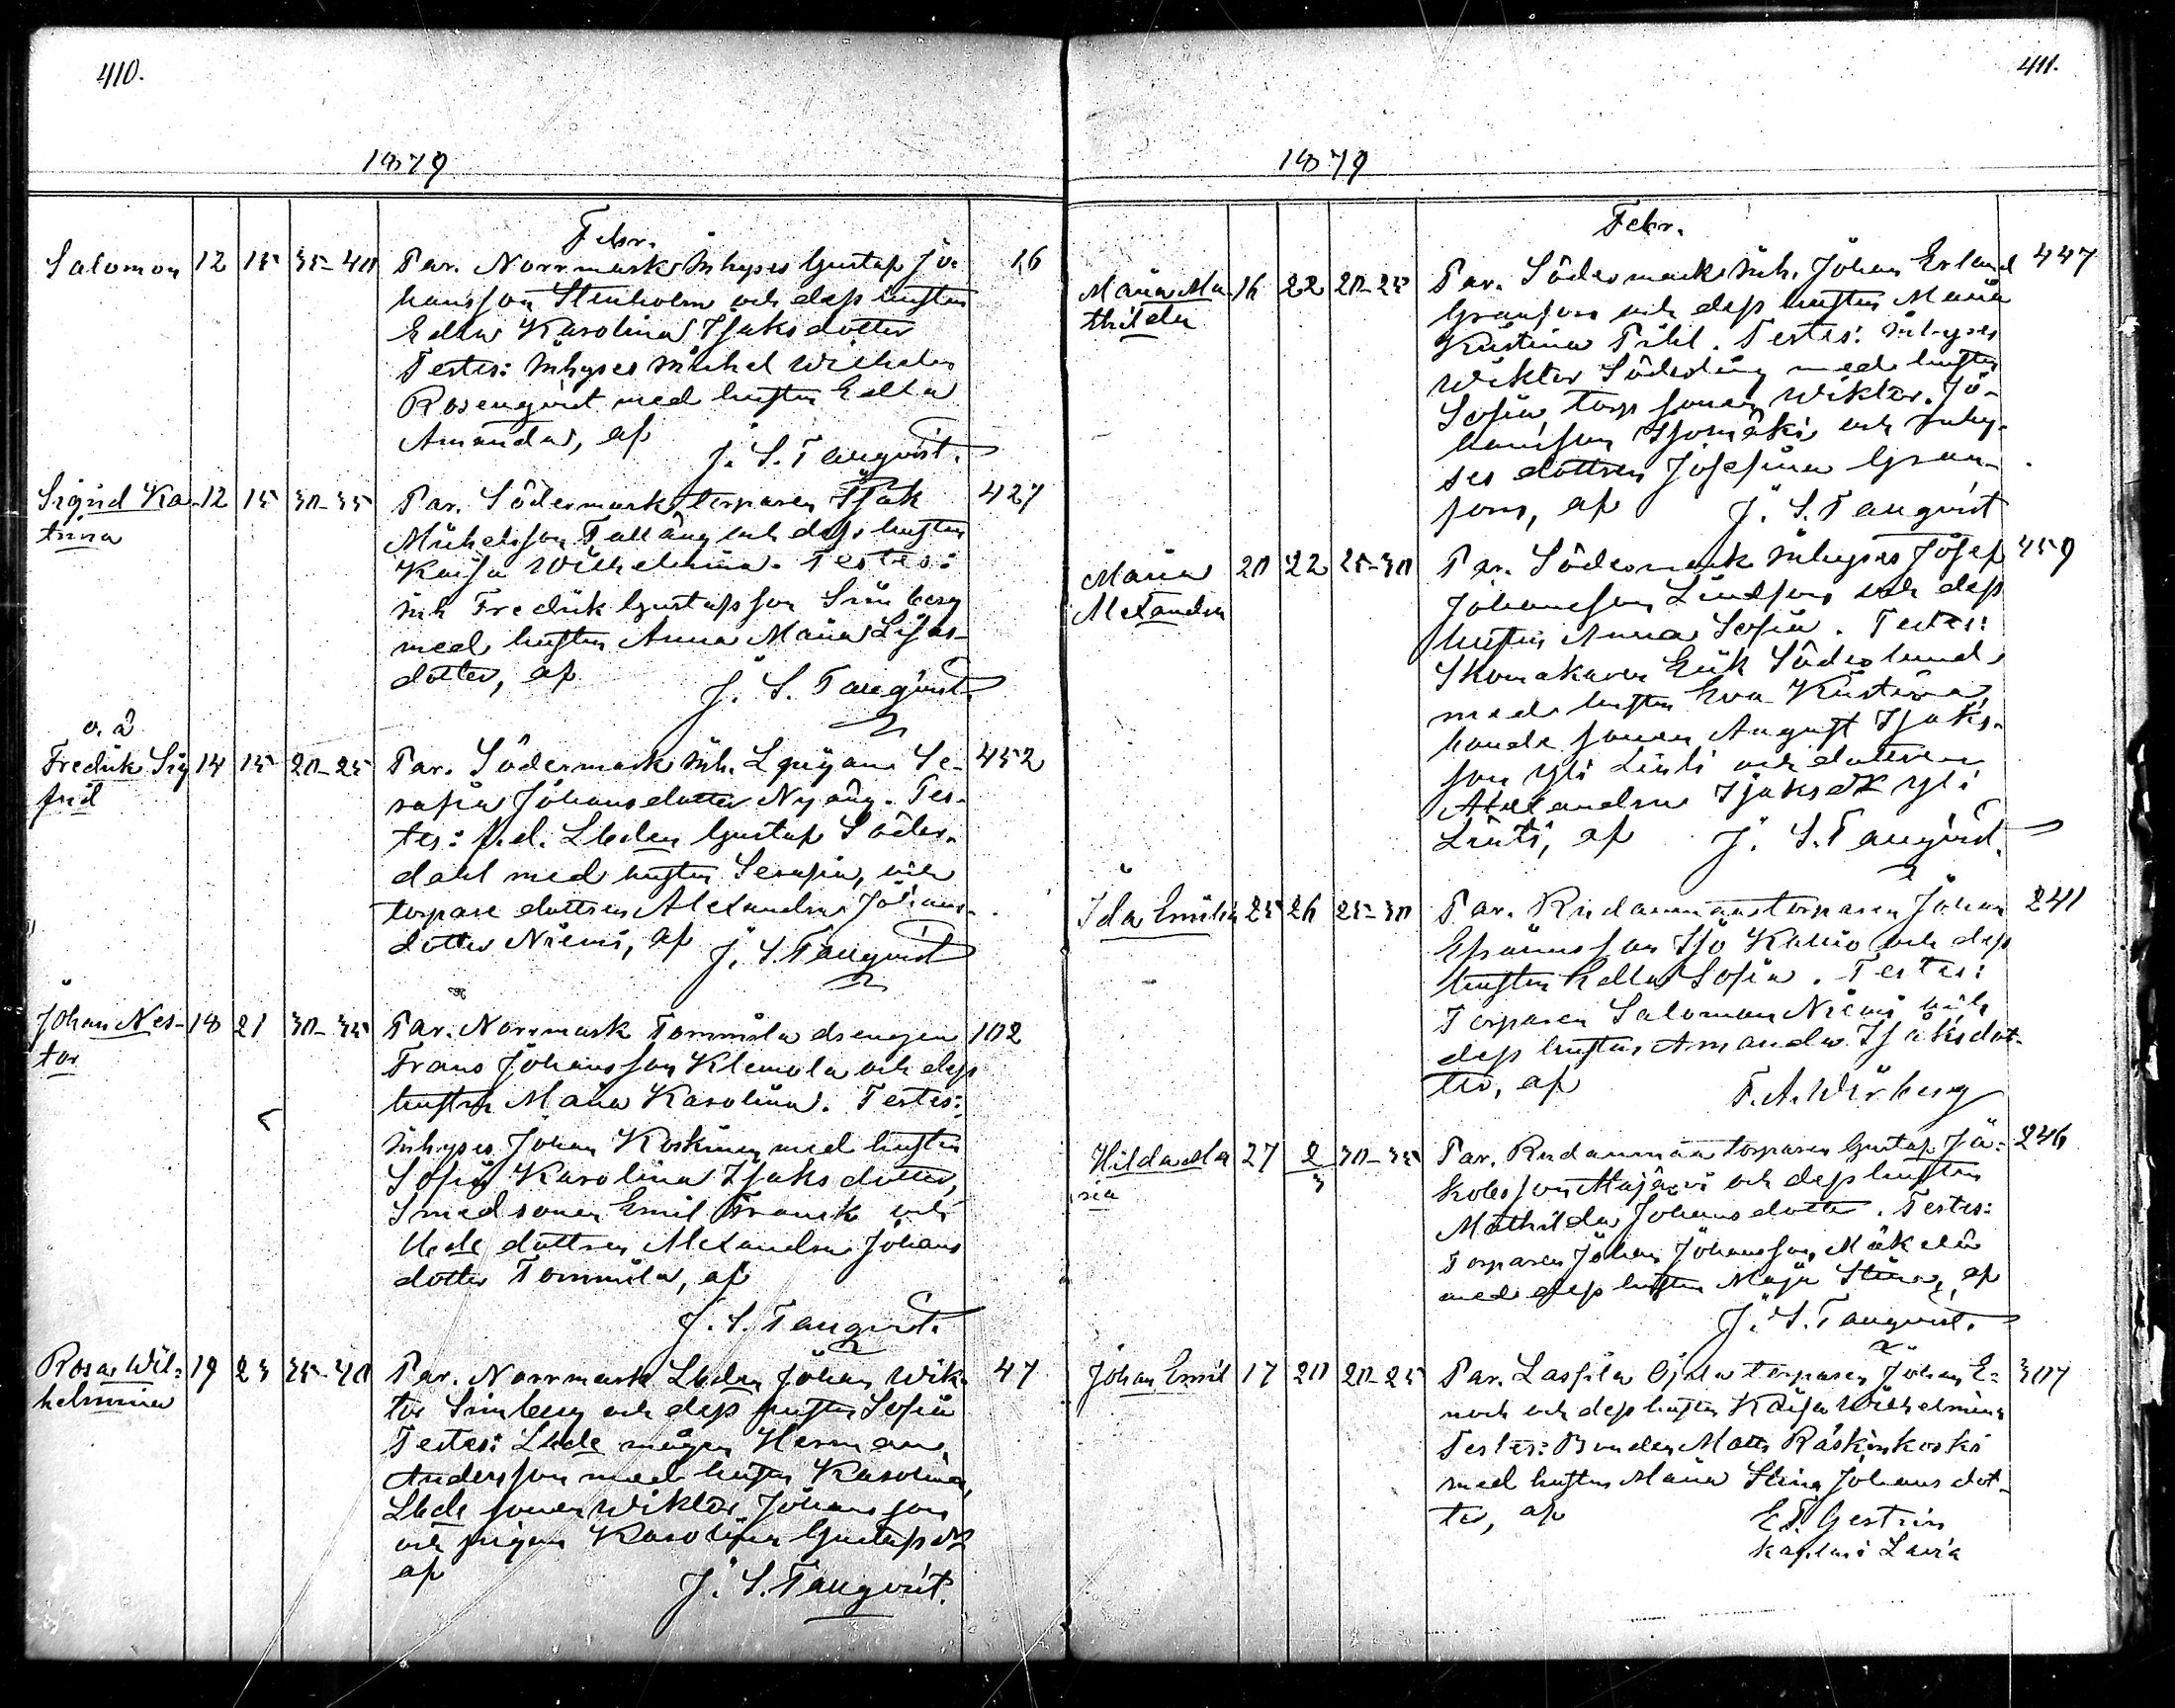 410.
1879
Febr.
Salomon 12 15 35-40 Par. Norrmark Inhyses Gustaf Jo- 16
hansson Stenholm och dess hustru
Edla Karolina Isaksdotter
Testes: Inhyses Mikel Wilhelm
Rosenqvist med hustru Edla
Amanda, af J. S. Tanqvist.
Sigrid Ka- 12 15 30-35 Par. Södermark, torparen Isak 427
trina
Mickelsson Talläng och dess hustru
Kaisa Wilhelmina. Testes:
Inh Fredrik Gustafsson Simberg
med hustru Anna Maria Lisas-
dotter, af J. S. Tanqvist.
o. ä
Fredrik Sig 14 15 20-25 Par. Södermark Inh. Lqvigan Se- 452
frid
rafia Johansdotter Nyäng. Tes-
tes: f.d. Lbden Gustaf Söder-
dahl med hustru Serafia, och
torpare dottren Alexandra Johans-
dotter Niemi, af J. S. Tanqvist
Johan Nes- 18 21 30-35 Par. Norrmark Tommila drengen 102
tor
Frans Johansson Klemola och dess
hustru Maria Karolina. Testes:
Inhyses Johan Koskinen med hustru
Sofia Karolina Isaksdotter,
Smedsonen Emil Franck och
Lbde dottren Alexandra Johans
dotter Tommila, af
J. S. Tanqvist.
Rosa Wil- 19 23 35-40 Par. Norrmark Lbden Johan Wik- 47
helmina
tor Simberg och dess hustru Sofia
Testes: Lbde mågen Herman
Andersson med hustru Karolina,
Lbde sonen Wiktor Johansson
och pigan Karolina Gustafsdr
af J. S. Tanqvist.
411.
1879
Febr.
Maria Ma- 16 22 20-25 Par. Södermark Inh. Johan Erland 447
thilda
Granfors och dess hustru Maria
Kristina Pihl. Testes: Inhyses
Wiktor Söderling med hustru
Sofia torp sonen Wiktor Jo-
hansson Isomäki och Inhy-
ses dottren Josefina Gran-
fors, af J. S. Tanqvist
Maria 20 22 25-30 Par. Södermark Inhyses Josef 459
Alexandra
Johansson Lindfors och dess
hustru Anna Sofia. Testes:
Skomakaren Erik Söderlund
med hustru Eva Kristina,
bonde sonen August Isaks-
son Yli Linti och dottren
Alexandra Isaksdr Yli
Linti, af J. S. Tanqvist.
Ida Emilia 25 26 25-30 Par. Rudanmaa torparen Johan 241
Efraimsson Iso Kallio och dess
hustru Edla Sofia. Testes:
Torparen Salomon Niemi och
dess hustru Amanda Isaksdot-
ter, af F. A. Wirberg
Hilda Ma 27 2/3 30-35 Par. Rudanmaa torparen Gustaf Ja- 246
ria
kobsson Majärvi och dess hustru
Mathilda Johansdotter. Testes:
Torparen Johan Johansson Mäkelä
med dess hustru Maja Stina, af
J. S. Tanqvist.
Johan Emil 17 20 20-25 Par. Lassila Ojala torparen Johan E- 307
noch och dess hustru Kaisa Wilhelmina
Testes: Bonden Matts Raskinkoski
med hustru Maria Stina Johansdot-
ter, af E. F. Gestrin
kapl. i Lavia